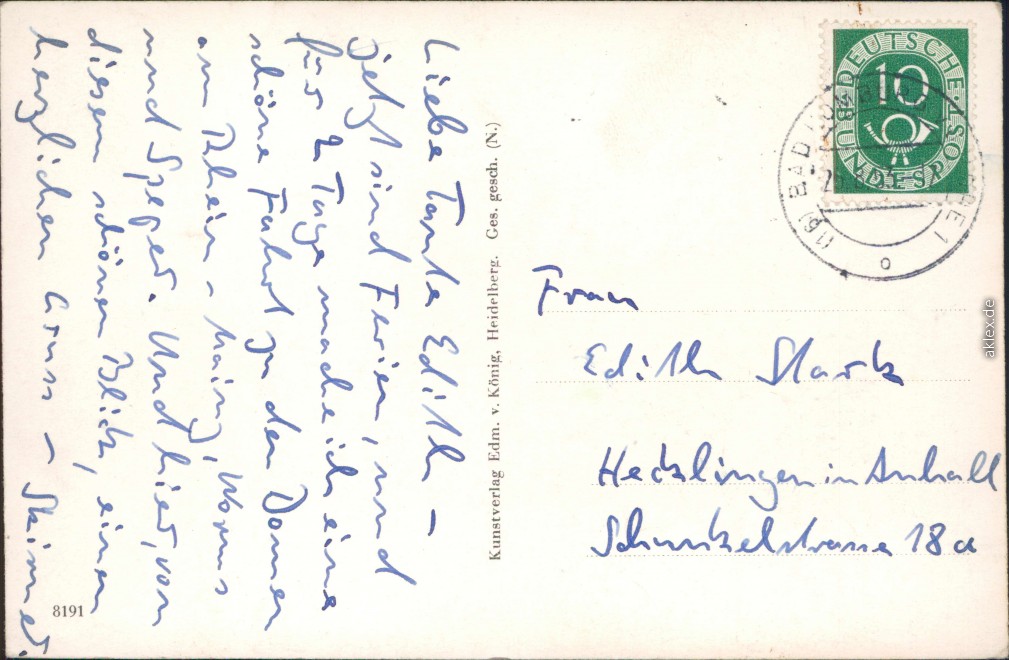 Liebe Tante Edith –
jetzt sind Ferien, und
für 2 Tage mache ich eine
schöne Fahrt zu den Domen
am Rhein – Mainz, Worms
und Speyer. Und hier, von
diesem schönen Blick, einen
herzlichen Gruss –
Kunstverlag Edm. v. König, Heidelberg. Ges. gesch. (N.)
8191
DEUTSCHE BUNDESPOST
10
(16) BAD
Frau
Edith Stark
Hecklingen in Anhalt
Schunkelstrasse 18a
aklex.de